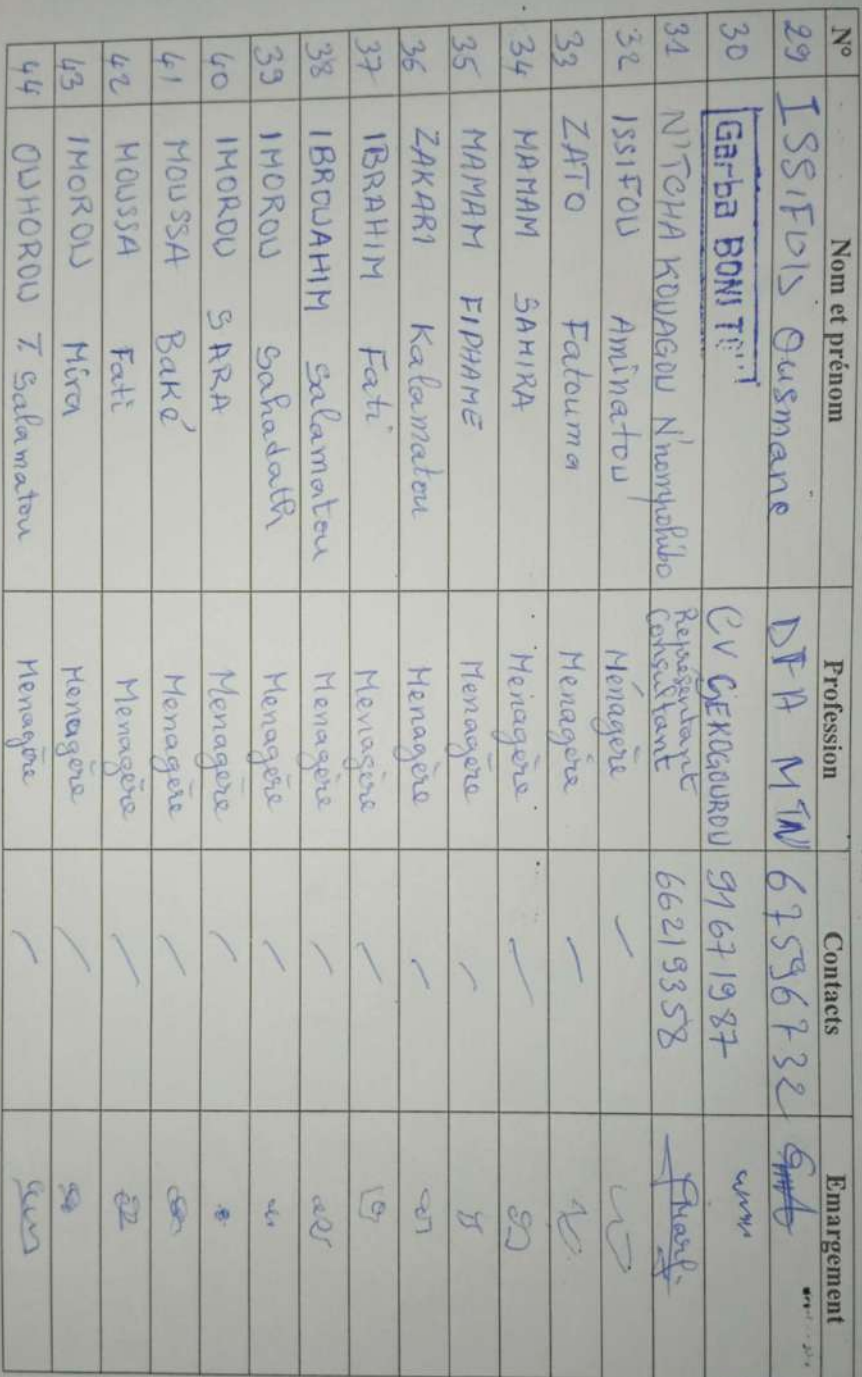 N° Nom et prénom Profession Contacts Emargement
29 ISSIFOU Ousmane DFA MTN 67596732
30 Garba BONI TE CV GEKOGOUROU 91671987
31 N'TCHA KOUAGOU N'nompohibo Représentant Consultant 66219358
32 ISSIFOU Aminatou Ménagère /
33 ZATO Fatouma Menagère /
34 MAMAM SAHIRA Menagère /
35 MAMAM FIPHAME Menagère /
36 ZAKARI Kalamatou Menagère /
37 IBRAHIM Fati Menagère /
38 IBROUAHIM Salamatou Menagère /
39 IMOROU Sahadath Menagère /
40 IMOROU SARA Menagère /
41 MOUSSA Baké Menagère /
42 MOUSSA Fati Menagère /
43 IMOROU Mira Menagère /
44 OUHOROU Z Salamatou Menagère /